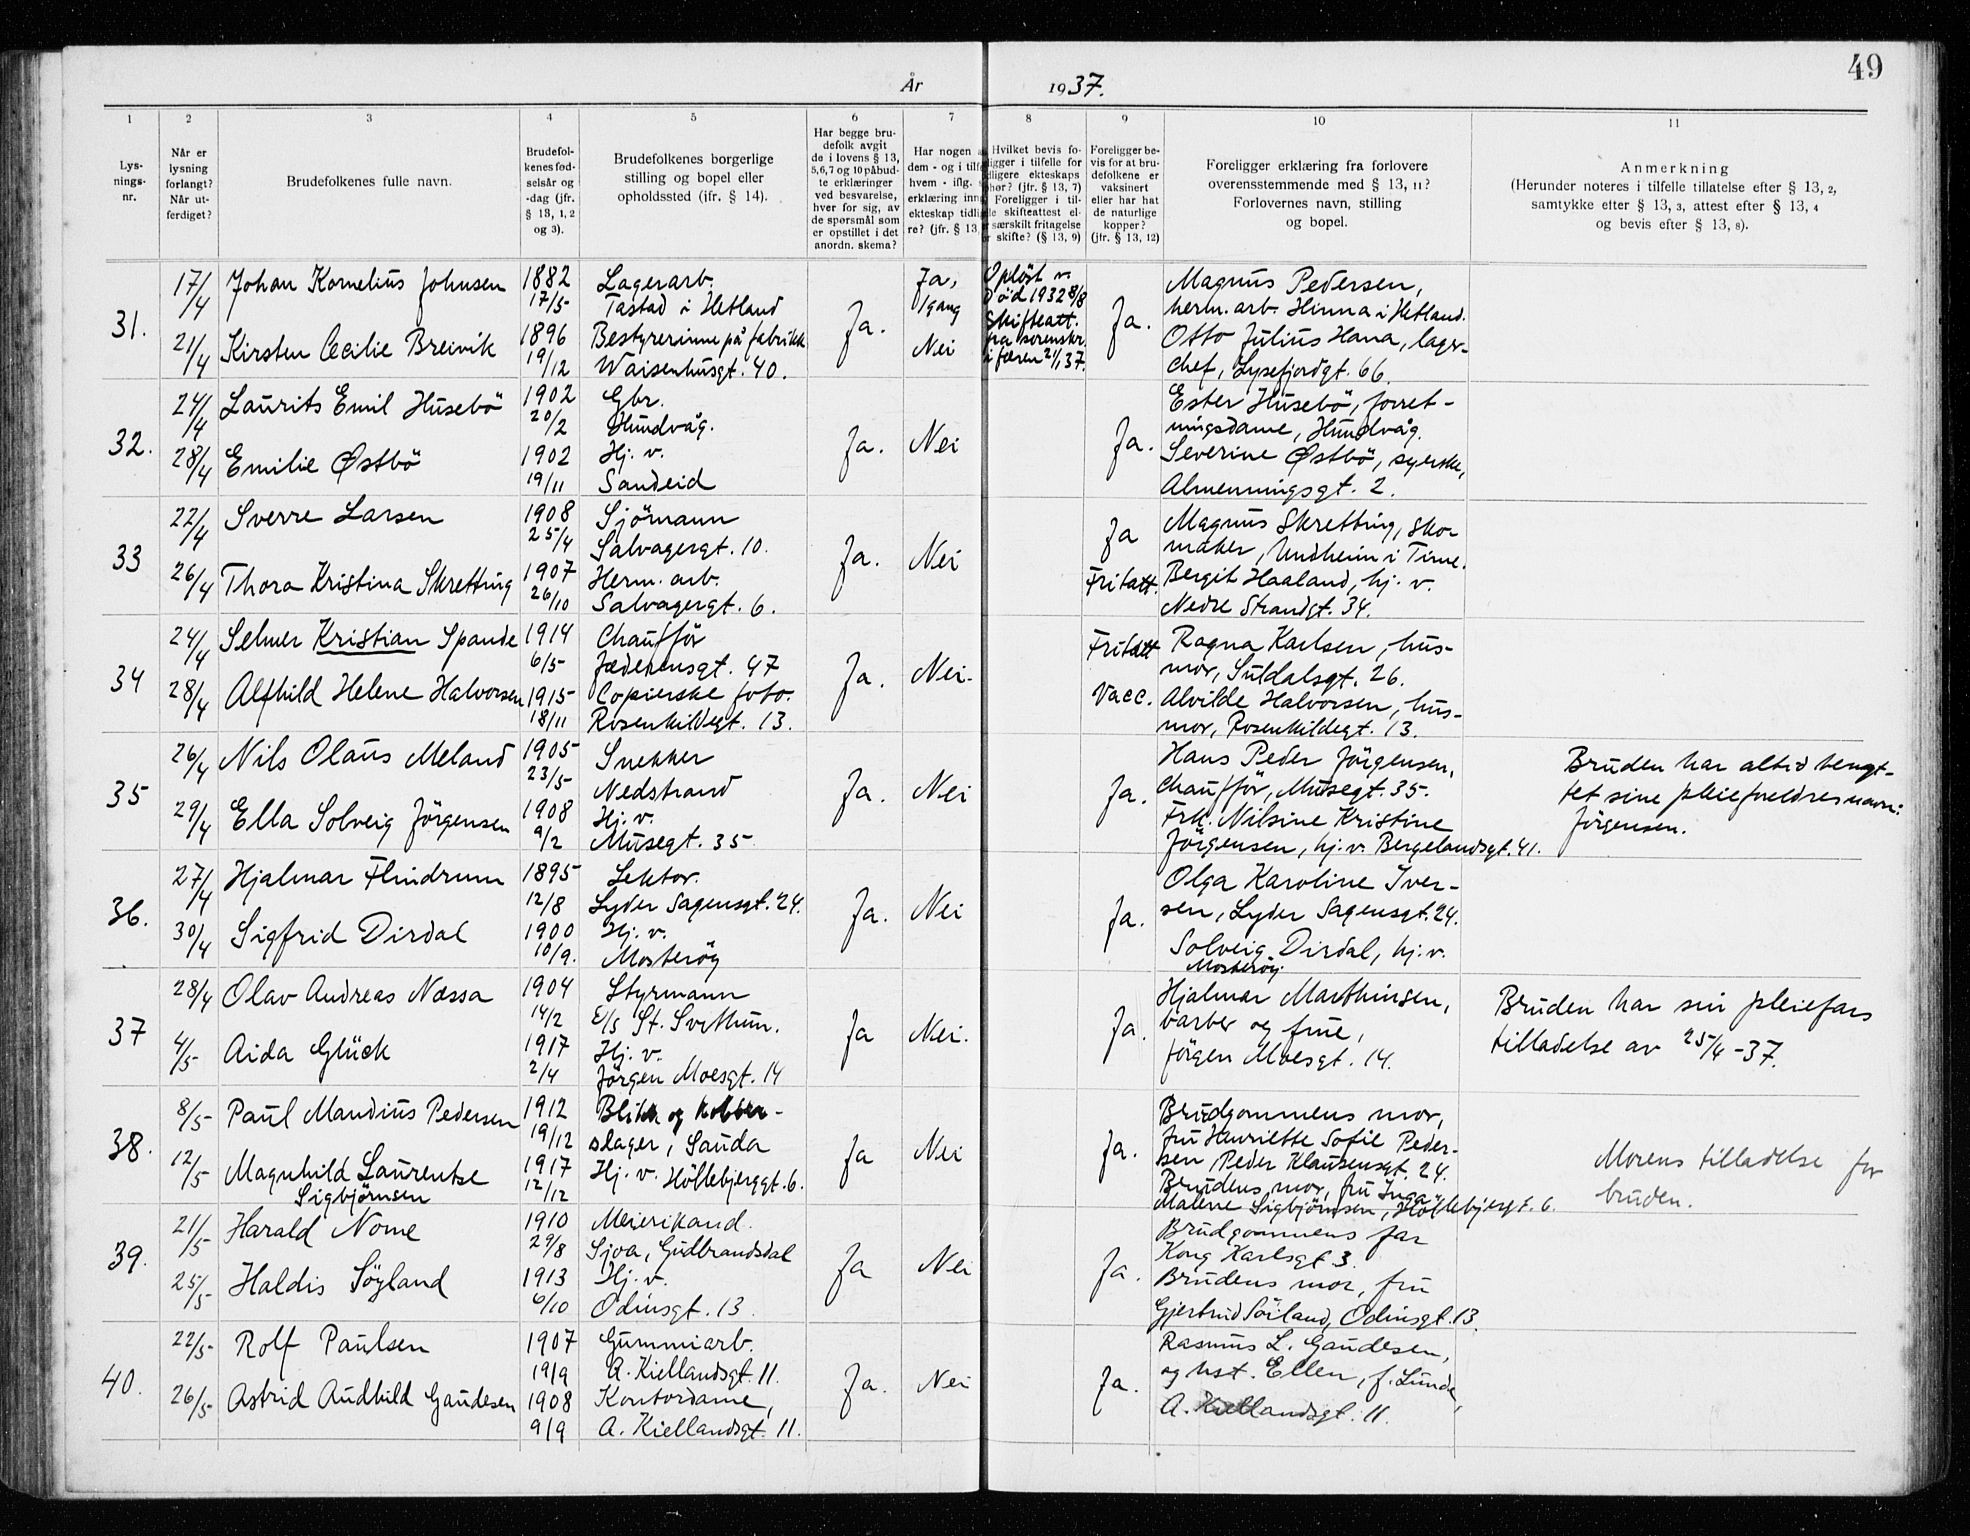 49
År 1937.
1 2 3 4 5 6 7 8 9 10 11
Lys-
nings-
nr.
Når er
lysning
forlangt?
Når ut-
ferdiget?
Brudefolkenes fulle navn.
Brudefol-
kenes fød-
selsår og
-dag (jfr.
§ 13, 1, 2
og 3).
Brudefolkenes borgerlige
stilling og bopel eller
opholdssted (ifr. § 14).
Har begge bru-
defolk avgit
de i lovens § 13,
5, 6, 7 og 10 påbud-
te erklæringer
ved besvarelse,
hver for sig, av
de spørsmål som
er opstillet i det
anordn. skema?
Har nogen a
dem - og i tilf
hvem - iflg.
erklæring inng
ekteskap tidli
re? (jfr. § 13,
Hvilket bevis fo-
ligger i tilfelle for
dligere ekteskaps
phør? (jfr. § 13, 7)
Foreligger i til-
de skifteattest el-
særskilt fritagelse
r skifte? (§ 13, 9)
Foreligger be-
vis for at bru-
defolkene er
vaksinert
eller har hat
de naturlige
kopper?
(jfr. § 13, 12)
Foreligger erklæring fra forlovere
overensstemmende med § 13, 11?
Forlovernes navn, stilling
og bopel.
Anmerkning
(Herunder noteres i tilfelle tillatelse efter § 13, 2,
samtykke efter § 13, 3, attest efter § 13, 4
og bevis efter § 13, 8).
31.
17/4
21/4
Johan Kornelius Johnsen
Kirsten Cecilie Breivik
1882
17/5
1896
19/12
Lagerarb.
Tastad i Hetland
Bestyrerinne på fabrikk
Waisenhusgt. 40.
Ja.
Ja,
1 gang
Nei
Opløst v.
Død 1932 8/8
Skifteatt.
fra sorenskr.
i Jæren 21/1 37.
Ja.
Magnus Pedersen,
herm. arb. Hinna i Hetland.
Otto Julius Hana, lager-
chef, Lysefjordgt. 66.
32.
24/4
28/4
Laurits Emil Husebö
Emilie Østbö
1902
20/2
1902
19/11
Gbr.
Hundvåg.
Hj. v.
Sandeid
Ja.
Nei
Ja.
Ester Husebö, forret-
ningsdame, Hundvåg.
Severine Østbö, syerske,
Almenningsgt. 2.
33
22/4
26/4
Sverre Larsen
Thora Kristina Skretting
1908
25/4
1907
26/10
Sjömann
Salvagergt. 10.
Herm. arb.
Salvagergt. 6.
Ja.
Nei
Ja
Fritatt.
Magnus Skretting, sko-
maker, Undheim i Time.
Bergit Haaland, hj. v.
Nedre Strandgt. 34.
34
24/4
28/4
Selmer Kristian Spande
Alfhild Helene Halvorsen
1914
6/5
1915
18/11
Chaufför
Jæderensgt. 47
Copierske foto.
Rosenkildegt. 13.
Ja.
Nei.
Fritatt
Vacc.
Ragna Karlsen, hus-
mor, Suldalsgt. 26.
Alvilde Halvorsen, hus-
mor, Rosenkildegt. 13.
35
26/4
29/4
Nils Olaus Meland
Ella Solveig Jörgensen
1905
23/5
1908
9/2
Snekker
Nedstrand
Hj. v.
Musegt. 35
Ja.
Nei
Ja.
Hans Peder Jörgensen,
Chaufför, Musegt. 35.
Frk. Nilsine Kristine
Jörgensen, hj. v. Bergelandsgt. 41.
Bruden har altid bengt-
tet sine pleieforeldres navn:
Jörgensen.
36.
27/4
30/4
Hjalmar Flindrum
Sigfrid Dirdal
1895
12/8
1900
10/9.
Lektor.
Lyder Sagensgt. 24.
Hj. v.
Mosteröy
Ja.
Nei
Ja.
Olga Karoline Iver-
sen, Lyder Sagensgt. 24.
Solveig Dirdal, hj. v.
Mosteröy.
37
28/4
4/5
Olav Andreas Næssa
Aida Glück
1904
14/2
1917
2/4
Styrmann
E/S St. Svithun.
Hj. v.
Jörgen Moesgt. 14
Ja
Nei.
Ja.
Hjalmar Marthinsen,
barber og frue,
Jörgen Moesgt. 14.
Bruden har sin pleiefars
tilladelse av 25/4 -37.
38.
8/5
12/5
Paul Mandius Pedersen
Magnhild Laurentse
Sigbjörnsen
1912
19/12
1917
12/12
Blikk og kobber-
slager, Sauda
Hj. v. Höllebjerggt. 6.
Ja
Nei
Ja.
Brudgommens mor,
fru Henriette Sofie Peder-
sen, Peder Klausensgt. 24.
Brudens mor, fru Inga
Malene Sigbjörnsen, Höllebjergt. 6.
Morens tilladelse for
bruden.
39.
21/5
25/5
Harald Nome
Haldis Söyland
1910
29/8
1913
6/10
Meierikand.
Sjoa, Gudbrandsdal
Hj. v.
Odinsgt. 13.
Ja
Nei
Ja.
Brudgommens far
Kong Karlsgt 3.
Brudens mor, fru
Gjertrud Söiland, Odinsgt. 13.
40.
22/5
26/5
Rolf Paulsen
Astrid Audhild Gaudesen
1907
19/9
1908
9/9
Gummiarb.
A. Kiellandsgt. 11.
Kontordame,
A. Kiellandsgt. 11.
Ja.
Nei
Ja.
Rasmus L. Gaudesen,
og hst. Ellen, f. Lunde,
A. Kiellandsgt. 11.